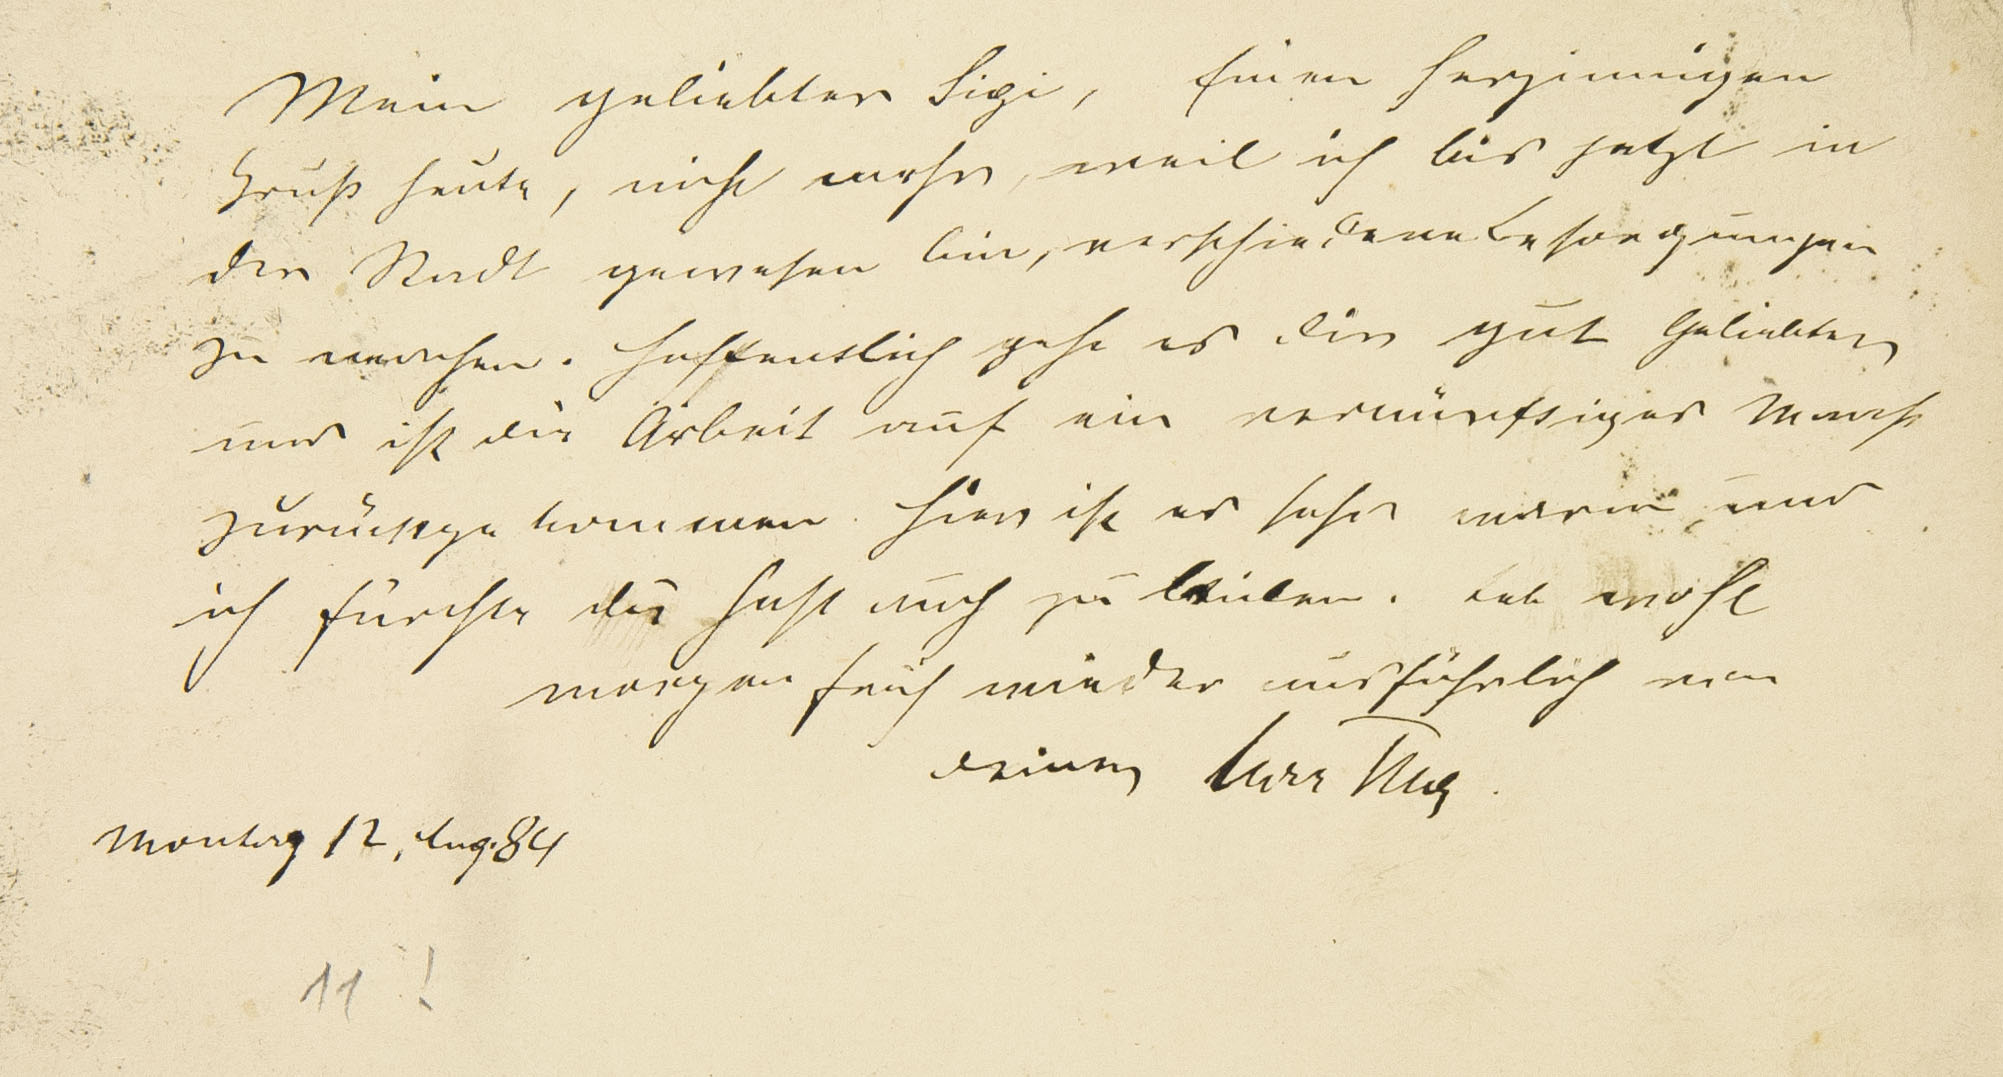 Mein geliebter Sigi, Einen herzinnigen
Gruß heute, nicht mehr, weil ich bis jetzt in
der Stadt gewesen bin, verschiedene Besorgungen
zu machen. Hoffentlich geht es dir gut Geliebter
und ist die Arbeit auf ein vernünftiges Maaß
zurückgekommen. Hier ist es sehr warm und
ich fürchte du hast auch zu leiden. Leb wohl
morgen früh wieder ausführlich von
deiner
Montag 12. Aug. 84
11 !